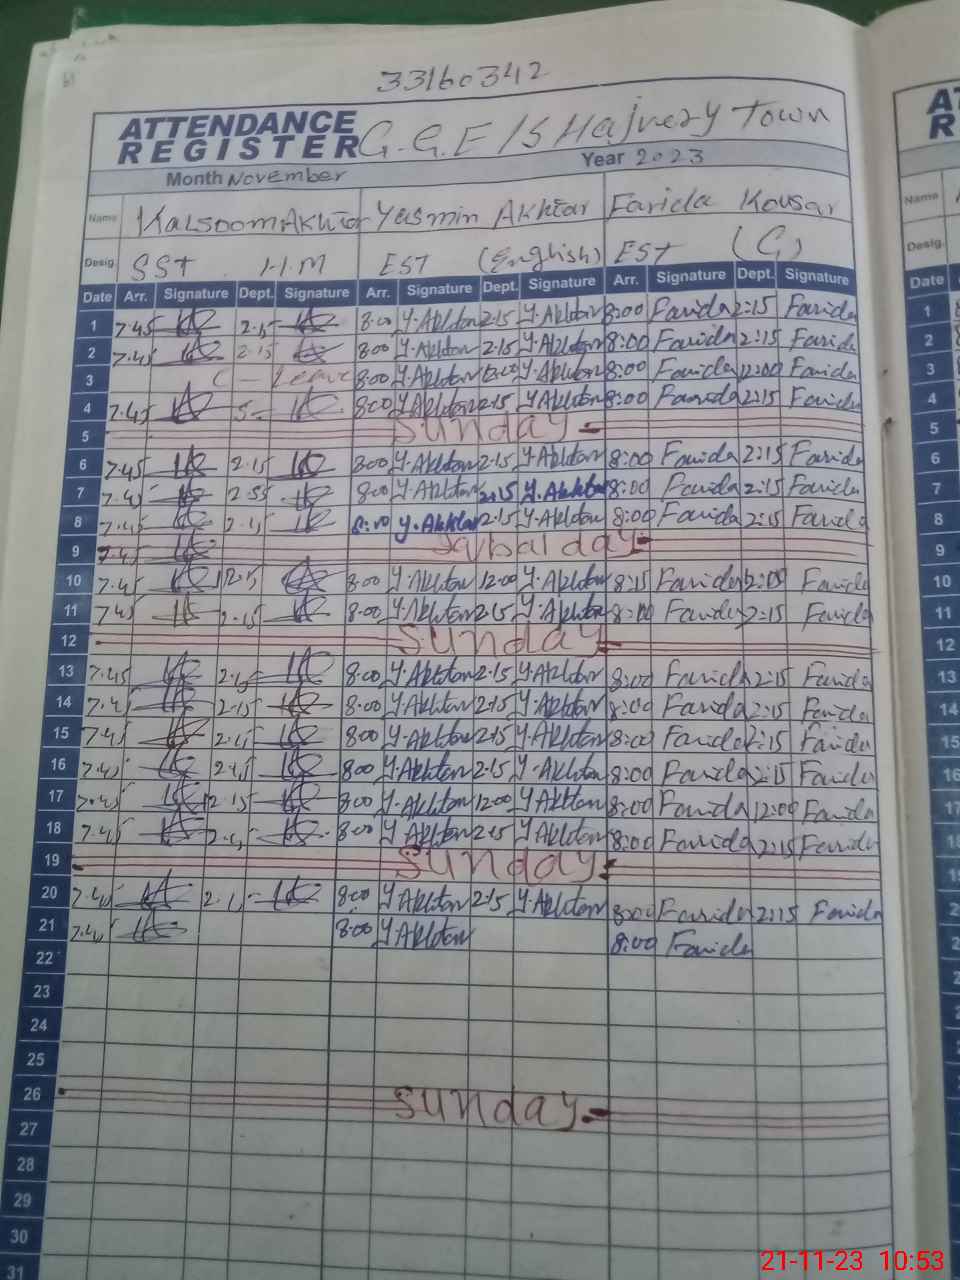 33160342
ATTENDANCE REGISTER G.G.E/S Hajvery Town
Month November Year 2023
Name Kalsoom Akhtar Yasmin Akhtar Farida Kousar
Desig. SST H.M EST (English) EST (G)
Date Arr. Signature Dept. Signature Arr. Signature Dept. Signature Arr. Signature Dept. Signature
1 7.45 2.15 8:00 Y.Akhtar 2.15 Y.Akhtar 8:00 Farida 2:15 Farida
2 7.45 2.15 8:00 Y.Akhtar 2.15 Y.Akhtar 8:00 Farida 2:15 Farida
3 C - Leave 8:00 Y.Akhtar 12:00 Y.Akhtar 8:00 Farida 12:00 Farida
4 7.45 8:00 Y.Akhtar 2.15 Y.Akhtar 8:00 Farida 2:15 Farida
5 Sunday
6 7.45 2.15 8:00 Y.Akhtar 2.15 Y.Akhtar 8:00 Farida 2:15 Farida
7 7.45 8:00 Y.Akhtar 2:15 Y.Akhtar 8:00 Farida 2:15 Farida
8 7.45 2.15 8:00 Y.Akhtar 2.15 Y.Akhtar 8:00 Farida 2:15 Farida
9 7.45 Iqbal day
10 7.45 12.15 8:00 Y.Akhtar 12:00 Y.Akhtar 8:15 Farida 12:00 Farida
11 7.45 2.15 8:00 Y.Akhtar 2.15 Y.Akhtar 8:00 Farida 2:15 Farida
12 Sunday
13 7.45 2.15 8:00 Y.Akhtar 2.15 Y.Akhtar 8:00 Farida 2:15 Farida
14 7.45 2.15 8:00 Y.Akhtar 2.15 Y.Akhtar 8:00 Farida 2:15 Farida
15 7.45 2.15 8:00 Y.Akhtar 2.15 Y.Akhtar 8:00 Farida 2:15 Farida
16 7.45 2.15 8:00 Y.Akhtar 2.15 Y.Akhtar 8:00 Farida 2:15 Farida
17 7.45 12.15 8:00 Y.Akhtar 12:00 Y.Akhtar 8:00 Farida 12:00 Farida
18 7.45 2.15 8:00 Y.Akhtar 2.15 Y.Akhtar 8:00 Farida 2:15 Farida
19 Sunday
20 7.45 2.15 8:00 Y.Akhtar 2.15 Y.Akhtar 8:00 Farida 2:15 Farida
21 7.45 8:00 Y Akhtar 8:00 Farida
22
23
24
25
26 Sunday
27
28
29
30
31
21-11-23 10:53